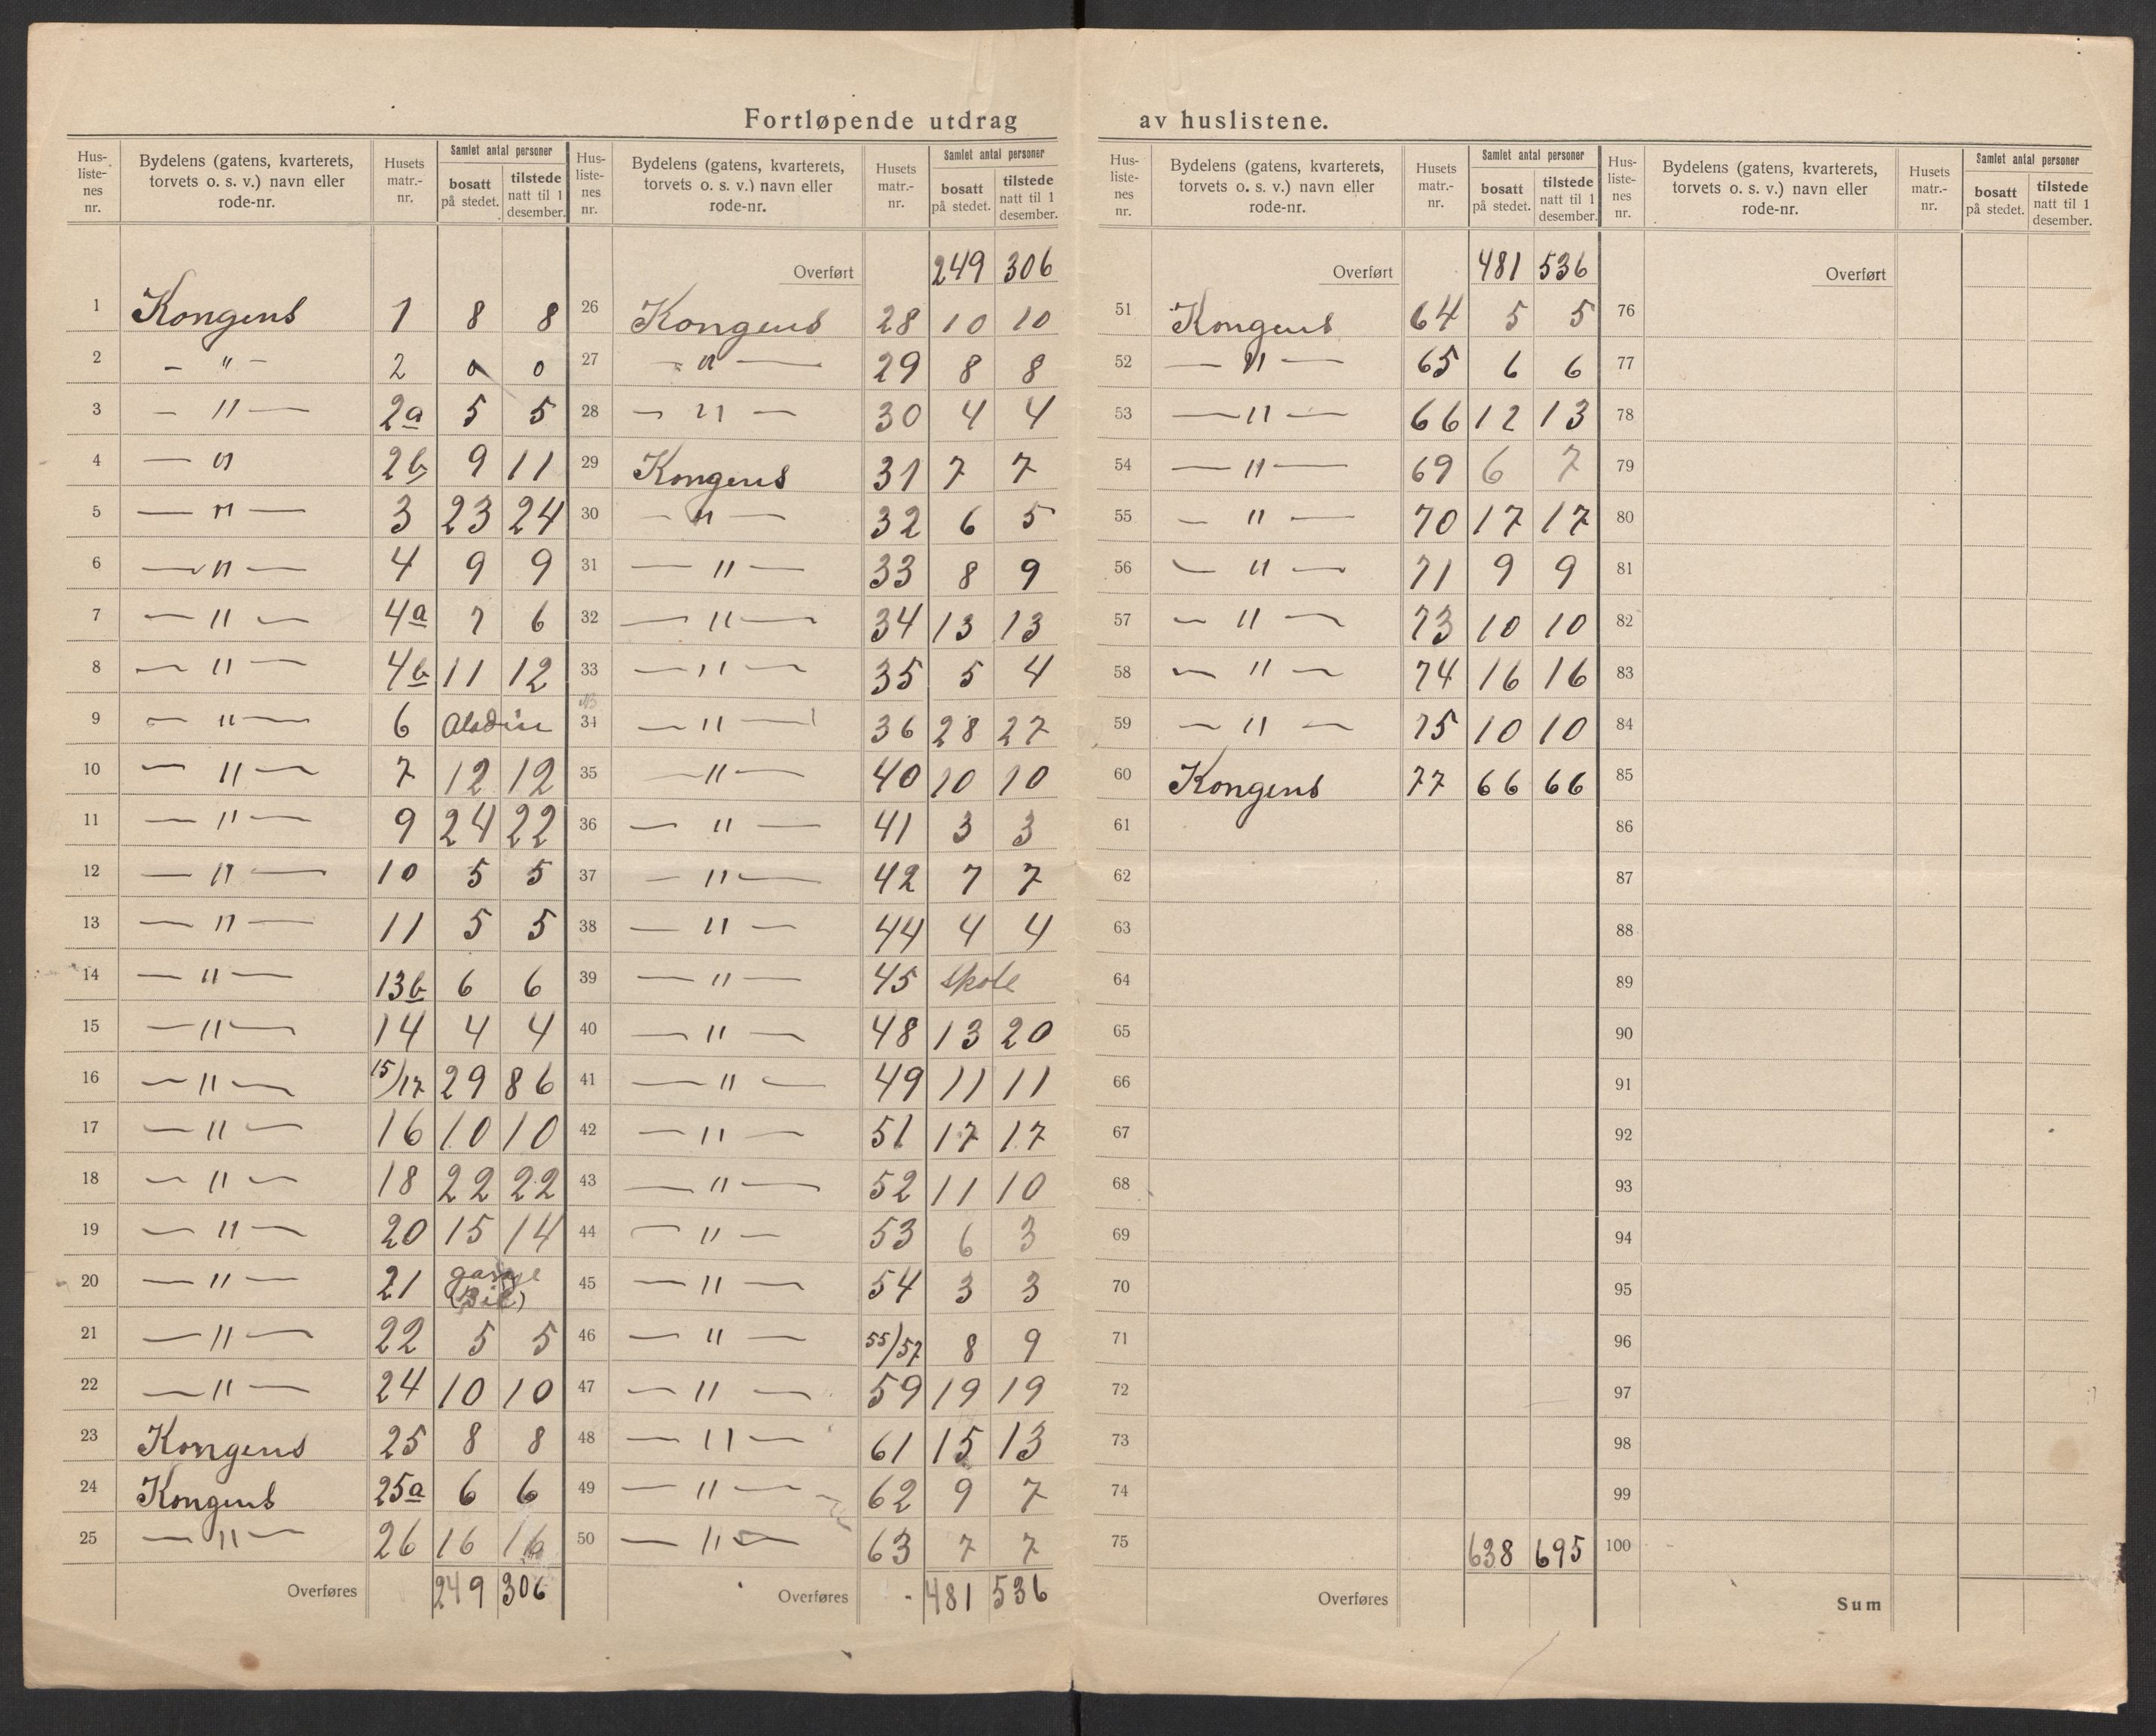 Fortløpende utdrag av huslistene.
Hus-listenes nr. | Bydelens (gatens, kvarterets, torvets o. s. v.) navn eller rode-nr. | Husets matr.-nr. | Samlet antal personer | bosatt på stedet. | tilstede natt til 1 desember.
1 Kongens 1 8 8
2 — " — 2 0 0
3 — " — 2a 5 5
4 — " 2b 9 11
5 — " — 3 23 24
6 — " — 4 9 9
7 — " — 4a 7 6
8 — " — 4b 11 12
9 — " — 6 Aladin
10 — " — 7 12 12
11 — " — 9 24 22
12 — " — 10 5 5
13 — " — 11 5 5
14 — " — 13b 6 6
15 — " — 14 4 4
16 — " — 15/17 29 86
17 — " — 16 10 10
18 — " — 18 22 22
19 — " — 20 15 14
20 — " — 21 garage (Bil)
21 — " — 22 5 5
22 — " — 24 10 10
23 Kongens 25 8 8
24 Kongens 25a 6 6
25 — " — 26 16 16
Overføres 249 306
Hus-listenes nr. | Bydelens (gatens, kvarterets, torvets o. s. v.) navn eller rode-nr. | Husets matr.-nr. | Samlet antal personer | bosatt på stedet. | tilstede natt til 1 desember.
Overført 249 306
26 Kongens 28 10 10
27 — " — 29 8 8
28 — " — 30 4 4
29 Kongens 31 7 7
30 — " — 32 6 5
31 — " — 33 8 9
32 — " — 34 13 13
33 — " — 35 5 4
34 — " — 36 28 27
35 — " — 40 10 10
36 — " — 41 3 3
37 — " — 42 7 7
38 — " — 44 4 4
39 — " — 45 Skole
40 — " — 48 13 20
41 — " — 49 11 11
42 — " — 51 17 17
43 — " — 52 11 10
44 — " — 53 6 3
45 — " — 54 3 3
46 — " — 55/57 8 9
47 — " — 59 19 19
48 — " — 61 15 13
49 — " — 62 9 7
50 — " — 63 7 7
Overføres 481 536
Hus-listenes nr. | Bydelens (gatens, kvarterets, torvets o. s. v.) navn eller rode-nr. | Husets matr.-nr. | Samlet antal personer | bosatt på stedet. | tilstede natt til 1 desember.
Overført 481 536
51 Kongens 64 5 5
52 — " — 65 6 6
53 — " — 66 12 13
54 — " — 69 6 7
55 — " — 70 17 17
56 — " — 71 9 9
57 — " — 73 10 10
58 — " — 74 16 16
59 — " — 75 10 10
60 Kongens 77 66 66
61
62
63
64
65
66
67
68
69
70
71
72
73
74
75 638 695
Overføres
Hus-listenes nr. | Bydelens (gatens, kvarterets, torvets o. s. v.) navn eller rode-nr. | Husets matr.-nr. | Samlet antal personer | bosatt på stedet. | tilstede natt til 1 desember.
Overført
76
77
78
79
80
81
82
83
84
85
86
87
88
89
90
91
92
93
94
95
96
97
98
99
100
Sum